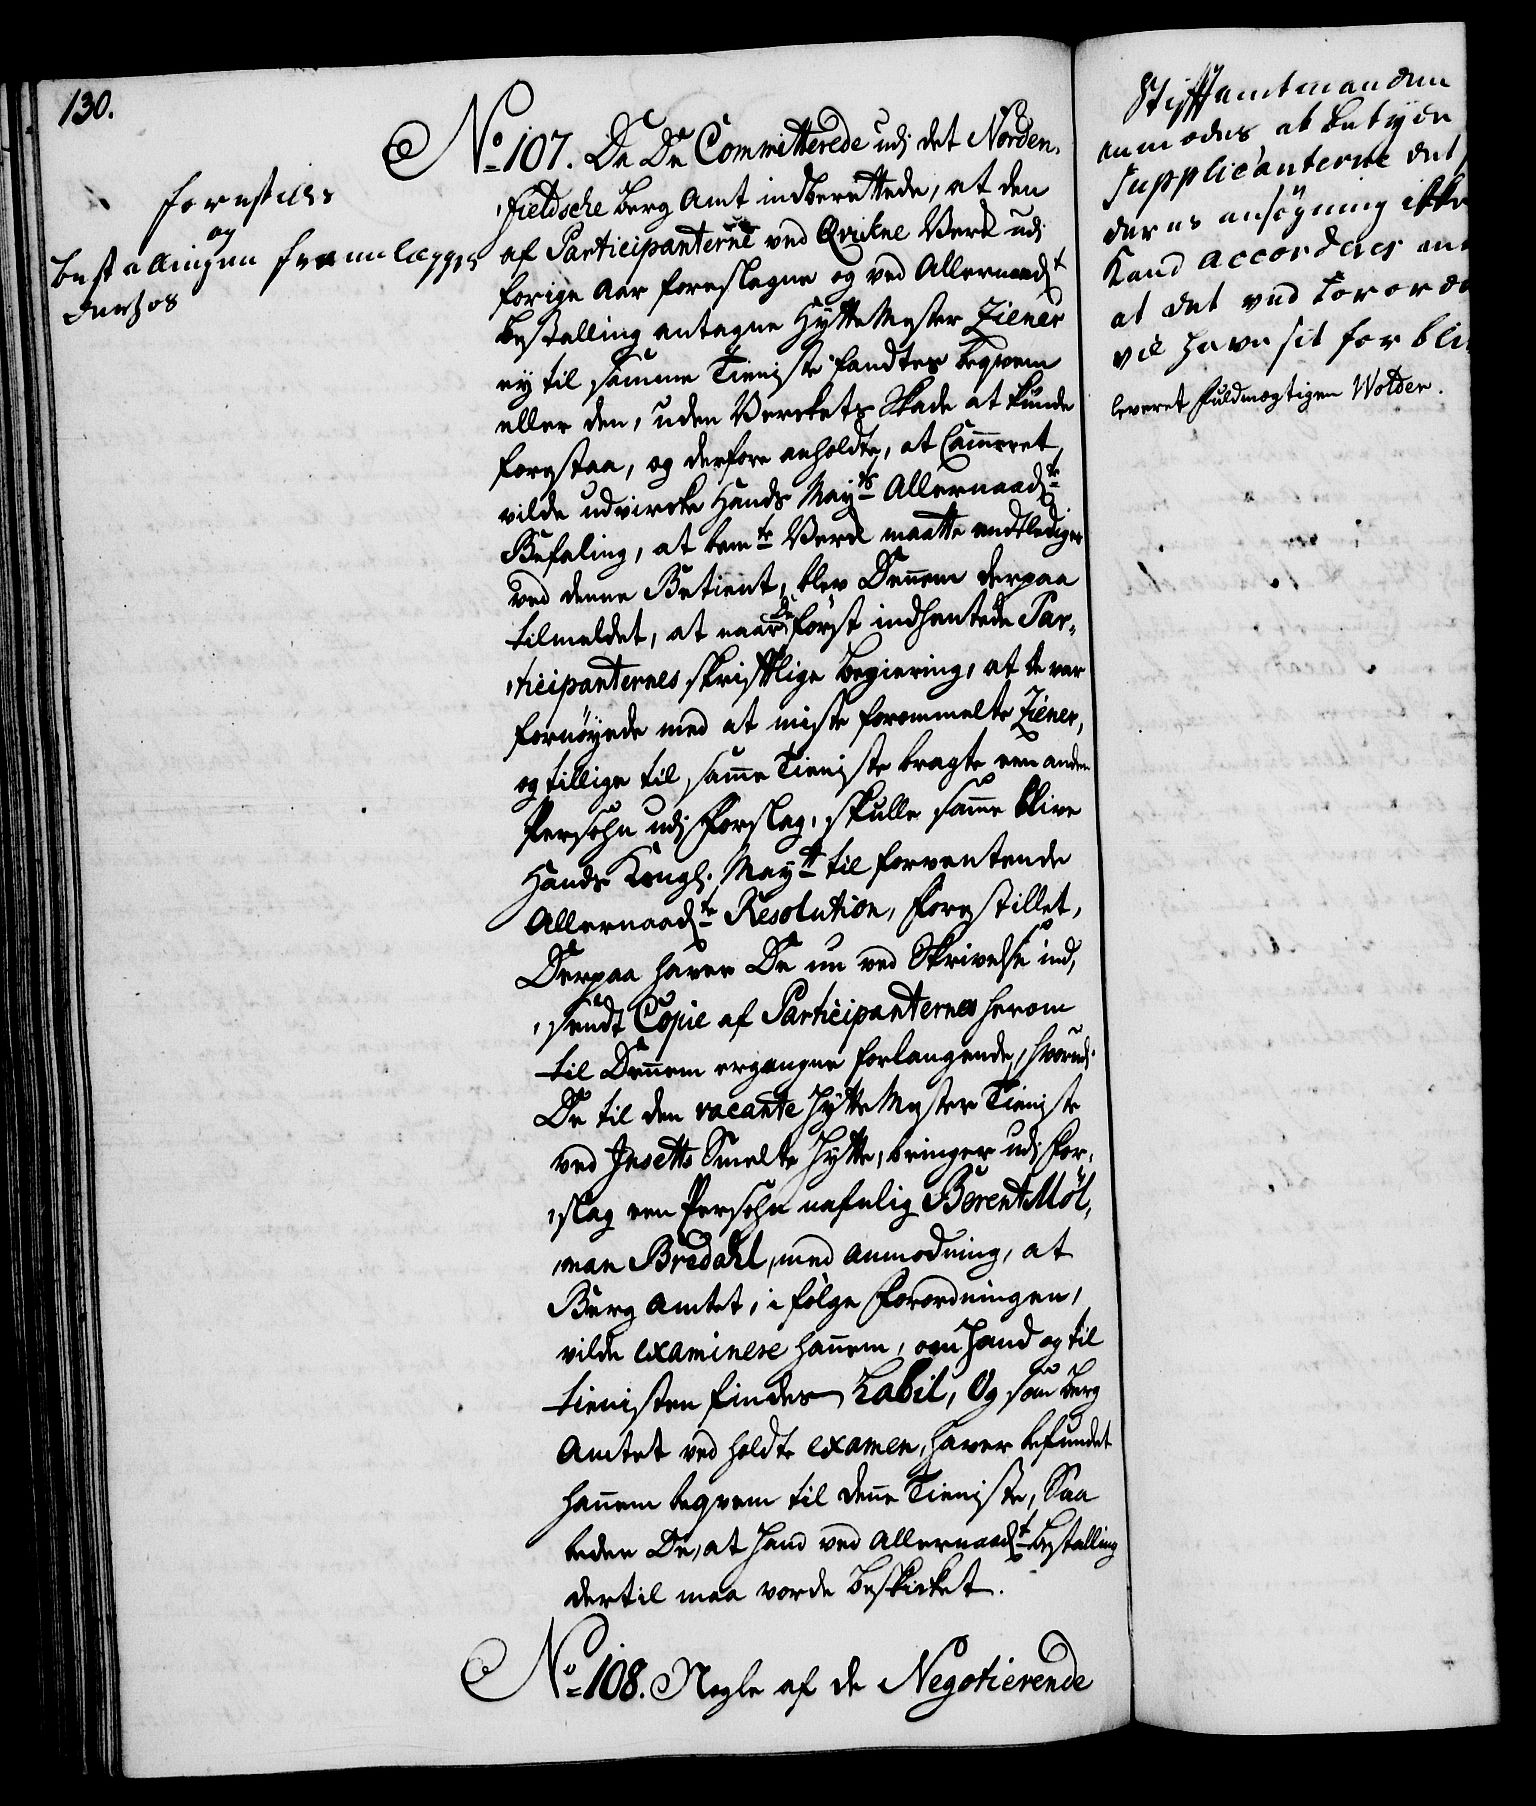 130.
forestilles
og
bestallingen fremlægges
derhos
No 107. De De Committerede udj det Norden-
fieldsche Berg Amt indberettede, at den
af Participanterne ved Qvikne Verk udj
forige Aar foreslagne og ved Allernaadt
Bestalling antagne Hytte Myster Ziener
ey til samme Tieniste fandtes beqvem
eller den, uden Verckets Skade at kunde
forestaa, og derfore anholdte, at Cammeret
vilde udvircke Hands Mayts Allernaadte
Befaling, at bemte Verk maatte entlediges
ved denne Betient, blev Dennem derpaa
tilmeldet, at naar De først indhentede Par-
ticipanternes skriftlige begiering, at de var
fornøyede med at miste forommelte Ziener,
og tillige til samme Tieniste bragte een anden
Persohn udj Forslag, skulle samme blive
Hands Kongl. Maytt til forventende
Allernaadte Resolution, forestillet,
Derpaa haver De nu ved Skrivelse ind-
sendt Copie af Participanternes herom
til Dennem ergangne forlangende, hvorudj
De til den vacante Hytte Myster Tieniste
ved Jnsetts Smelte Hytte, bringer udj For-
slag een Persohn nafnlig Berent Möl-
man Bredahl, med anmodning, at
Berg Amtet, i følge Forordningen,
vilde examinere hannem, om Hand og til
tienisten findes habil, Og som Berg
Amtet ved holdte examen, haver befundet
hannem beqvem til denne Tieniste, Saa
beder De, at Hand ved Allernaadt Bestalling
dertil maa vorde beskicket.
No 108. Nogle af de Negotierende
Stiftamtmanden
anmodes at betyde
Supplicanterne det
deres ansögning ikke
Kand accorderes
at det ved
vil have sit for
leveret Fuldmægtigen Wolder.